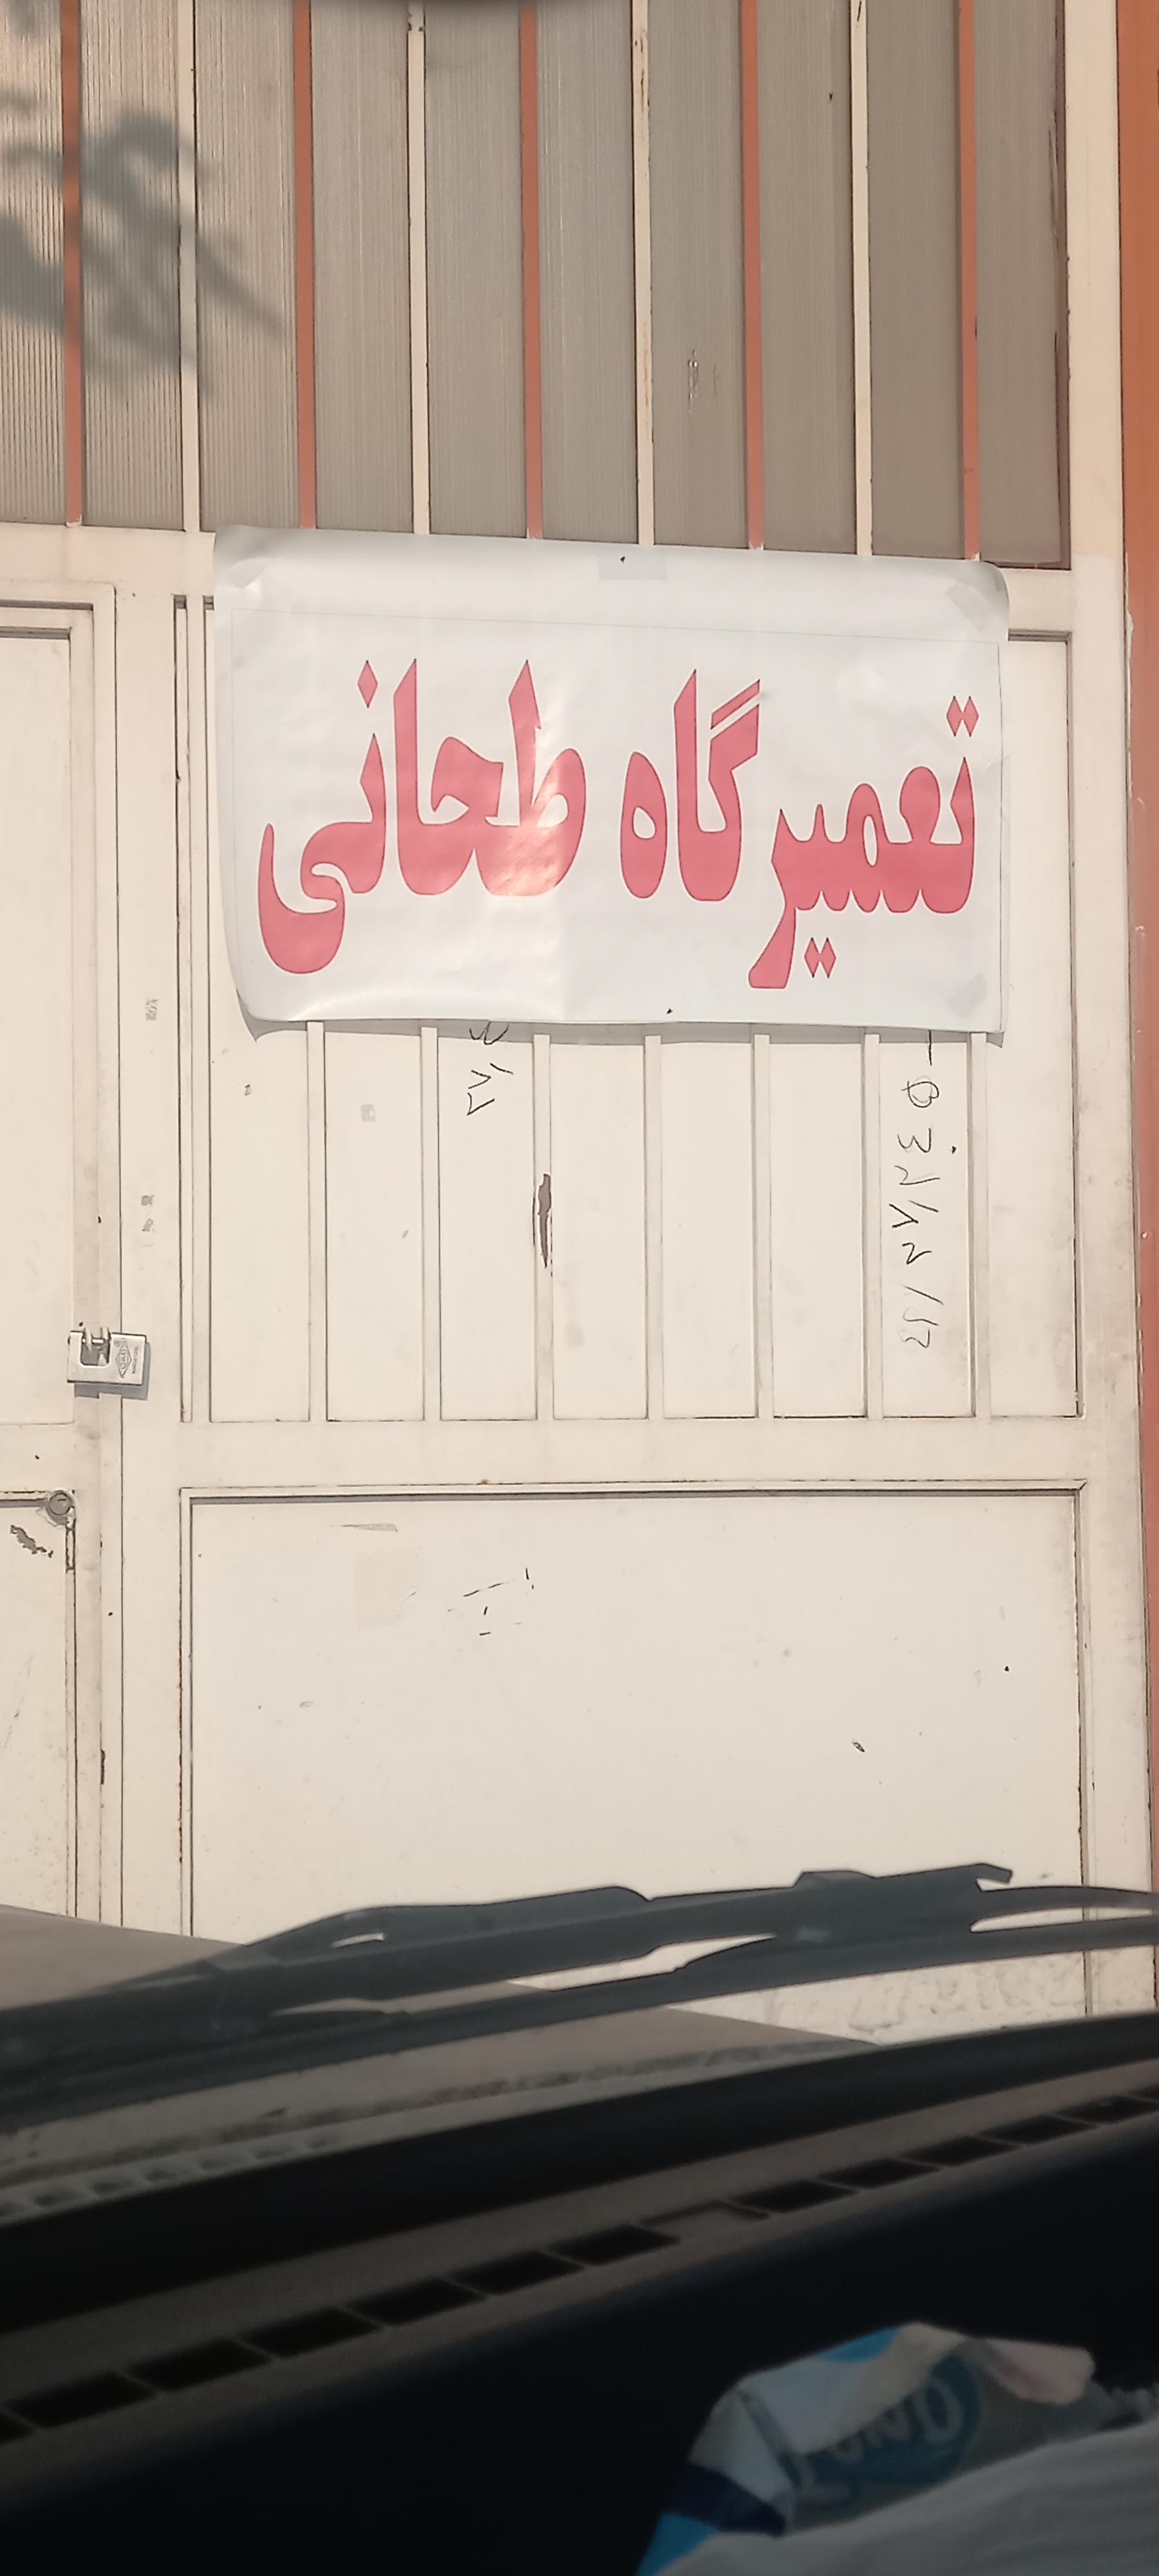 تعمیرگاه طحانی